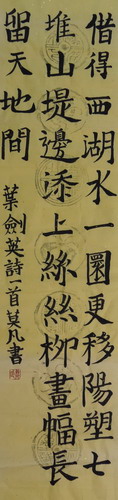 借得西湖水一圜更移陽塑七
堆山堤邊添上絲絲柳畫幅長
留天地間
葉劍英詩一首莫凡書